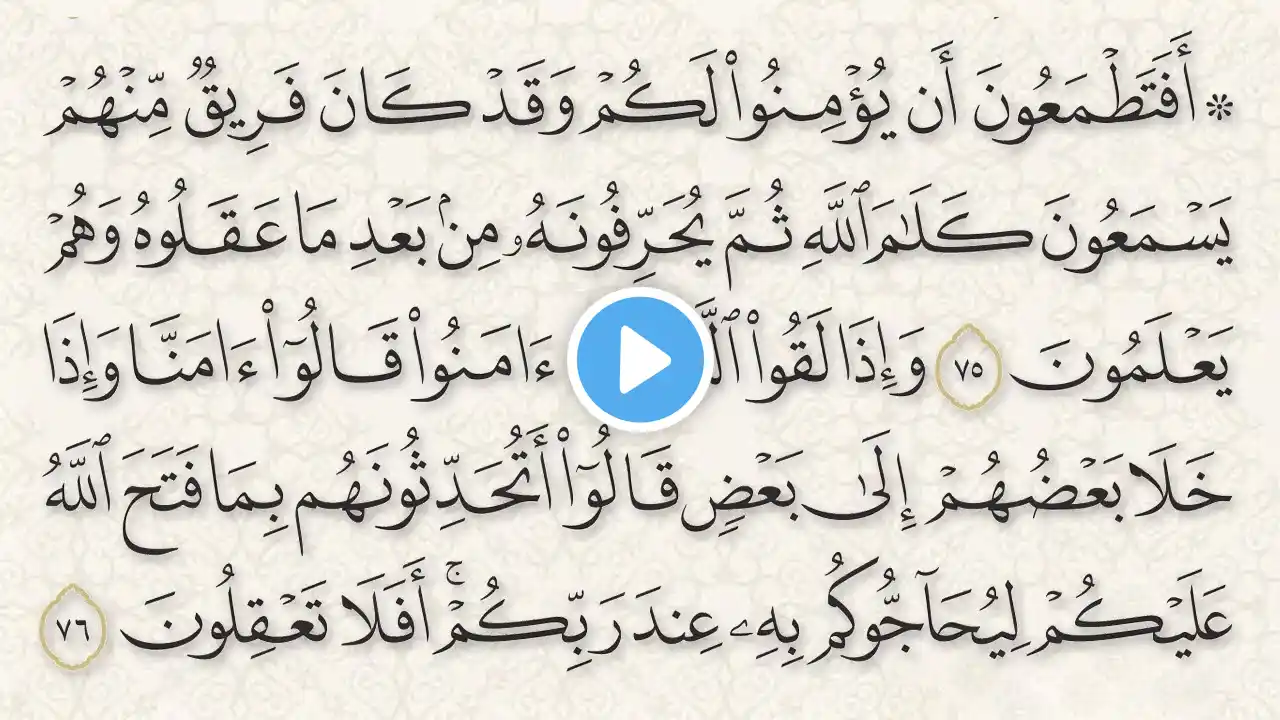 ۞ أَفَتَطْمَعُونَ أَن يُؤْمِنُوا۟ لَكُمْ وَقَدْ كَانَ فَرِيقٌ مِّنْهُمْ
يَسْمَعُونَ كَلَـٰمَ ٱللَّهِ ثُمَّ يُحَرِّفُونَهُۥ مِنۢ بَعْدِ مَا عَقَلُوهُ وَهُمْ
يَعْلَمُونَ ٧٥ وَإِذَا لَقُوا۟ ءَامَنُوا۟ قَالُوٓا۟ ءَامَنَّا وَإِذَا
خَلَا بَعْضُهُمْ إِلَىٰ بَعْضٍ قَالُوٓا۟ أَتُحَدِّثُونَهُم بِمَا فَتَحَ ٱللَّهُ
عَلَيْكُمْ لِيُحَآجُّوكُم بِهِۦ عِندَ رَبِّكُمْ ۚ أَفَلَا تَعْقِلُونَ ٧٦